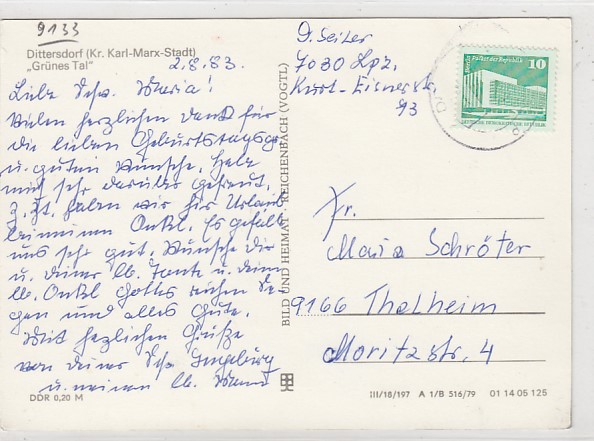 9133
Dittersdorf (Kr. Karl-Marx-Stadt)
„Grünes Tal"
2.8.83.
Liebe Schw. Maria!
Vielen herzlichen Dank für
die lieben Geburtstagsgr.
u. guten Wünsche. Habe
mich sehr darüber gefreut.
Z. Zt. haben wir hier Urlaub
bei meinem Onkel. Es gefällt
uns sehr gut. Wünsche dir
u. deiner lb. Tante u. deinem
lb. Onkel Gottes reichen Se-
gen und alles Gute.
Mit herzlichen Grüße
von deiner Schw. Ingeburg
u. meinem lb. Mann
DDR 0,20 M
BILD UND HEIMAT REICHENBACH (VOGTL)
D. Seiler
7030 Lpz.
Kurt-Eisnerstr.
93
10
Palast der Republik
DEUTSCHE DEMOKRATISCHE REPUBLIK
Fr.
Maria Schröter
9166 Thalheim
Moritzstr. 4
III/18/197 A 1/B 516/79 01 14 05 125